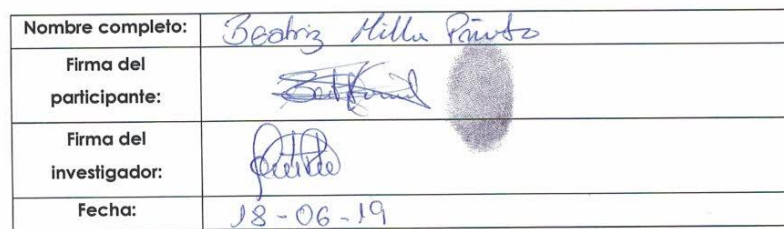 Nombre completo: Beatriz Milla
Firma del
participante:
Firma del
investigador:
Fecha: 18-06-19